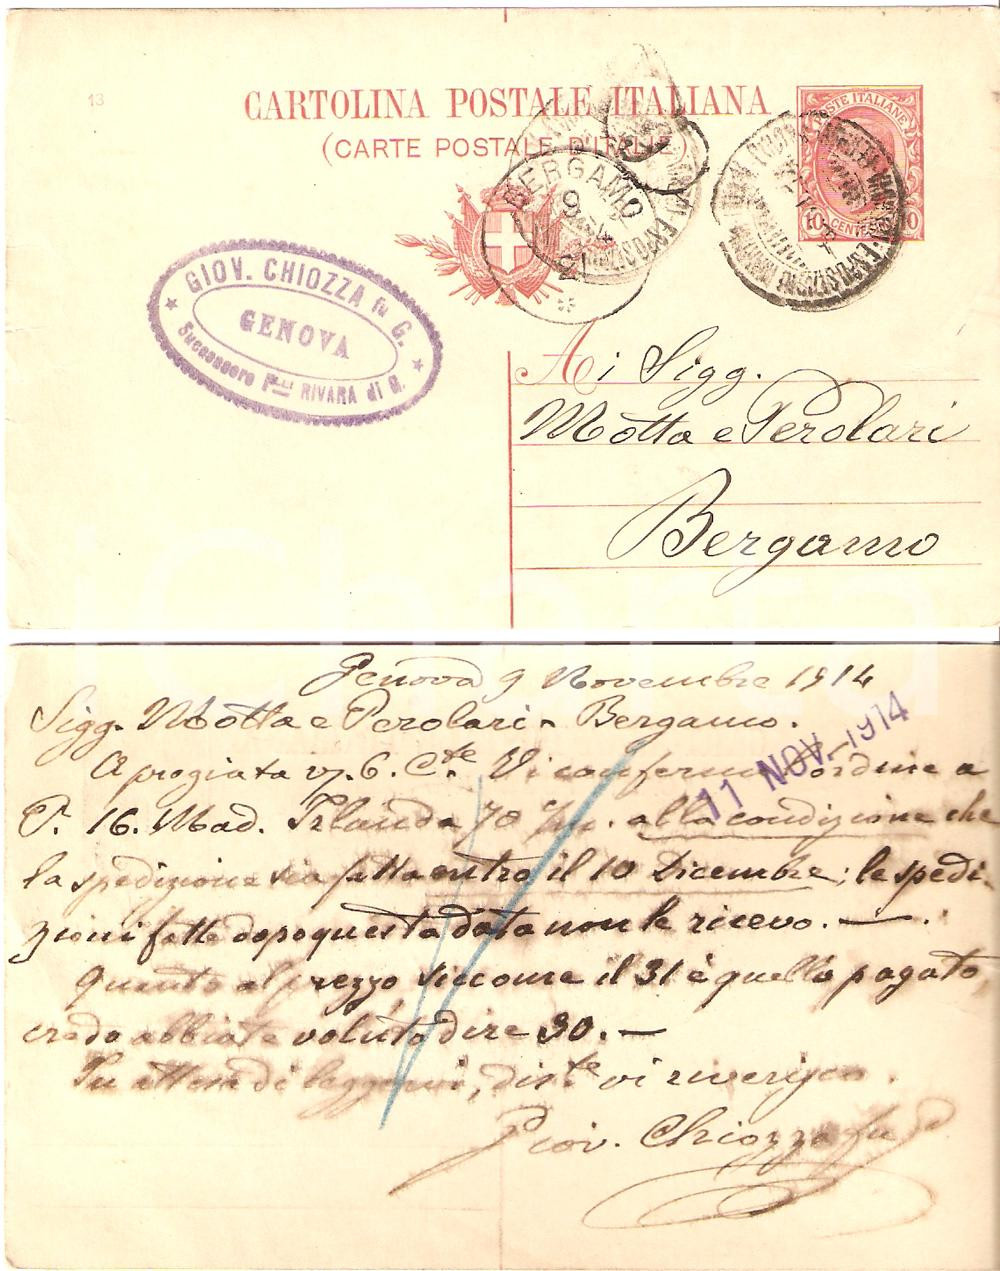 13
CARTOLINA POSTALE ITALIANA
(CARTE POSTALE D'ITALIE
POSTE ITALIANE
10 CENTESIMI 10
BERGAMO
GIOV. CHIOZZA fu G.
GENOVA
Successore F.lli RIVARA di G.
Ai Sigg.
Motta e Perolari
Bergamo
Genova 9 Novembre 1914
Sigg. Motta e Perolari - Bergamo.
11 NOV. 1914
A pregiata v/. 6. Cte. Vi confermo l'ordine a
P. 16. Mad. Irlanda 70 alla condizione che
la spedizione sia fatta entro il 10 Dicembre; le spedi-
zioni fatte dopo questa data non le ricevo. —
Quanto al prezzo siccome il 31 è quello pagato,
credo abbiate voluto dire 30. —
In attesa di leggervi, diste vi riverisco.
Giov. Chiozza fu G.